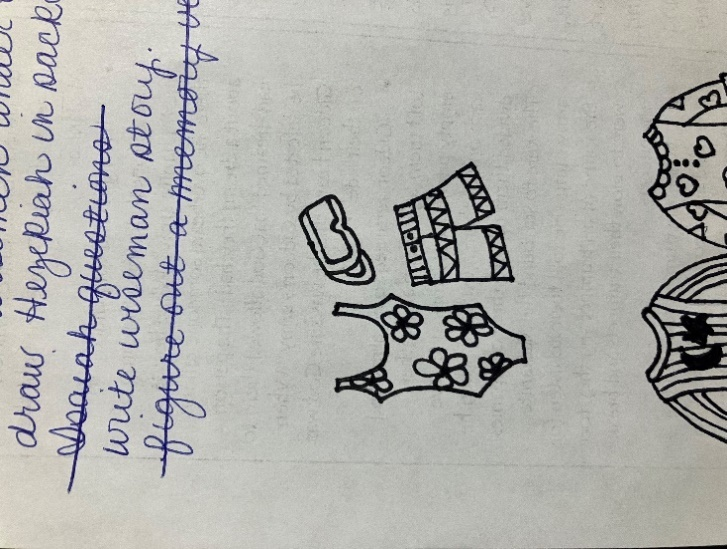 draw Hezekiah in sack
Isaiah questions
write wiseman story.
figure out a memory ve